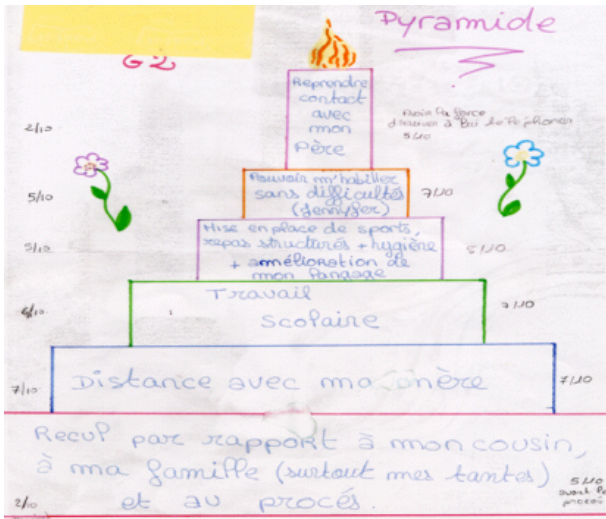 Pyramide
G2
Reprendre
contact
avec
mon
Père
2/10
Avoir la force
d'arriver à lui téléphoner
5/10
Pouvoir m'habiller
sans difficultés
(Jennyfer)
5/10
7/10
Mise en place de sports,
repas structurés + hygiène
+ amélioration de
mon langage
5/10
Travail
scolaire
7/10
Distance avec ma mère
7/10
7/10
Recul par rapport à mon cousin,
à ma famille (surtout mes tantes)
et au procés.
2/10
5/10
avant le
procès